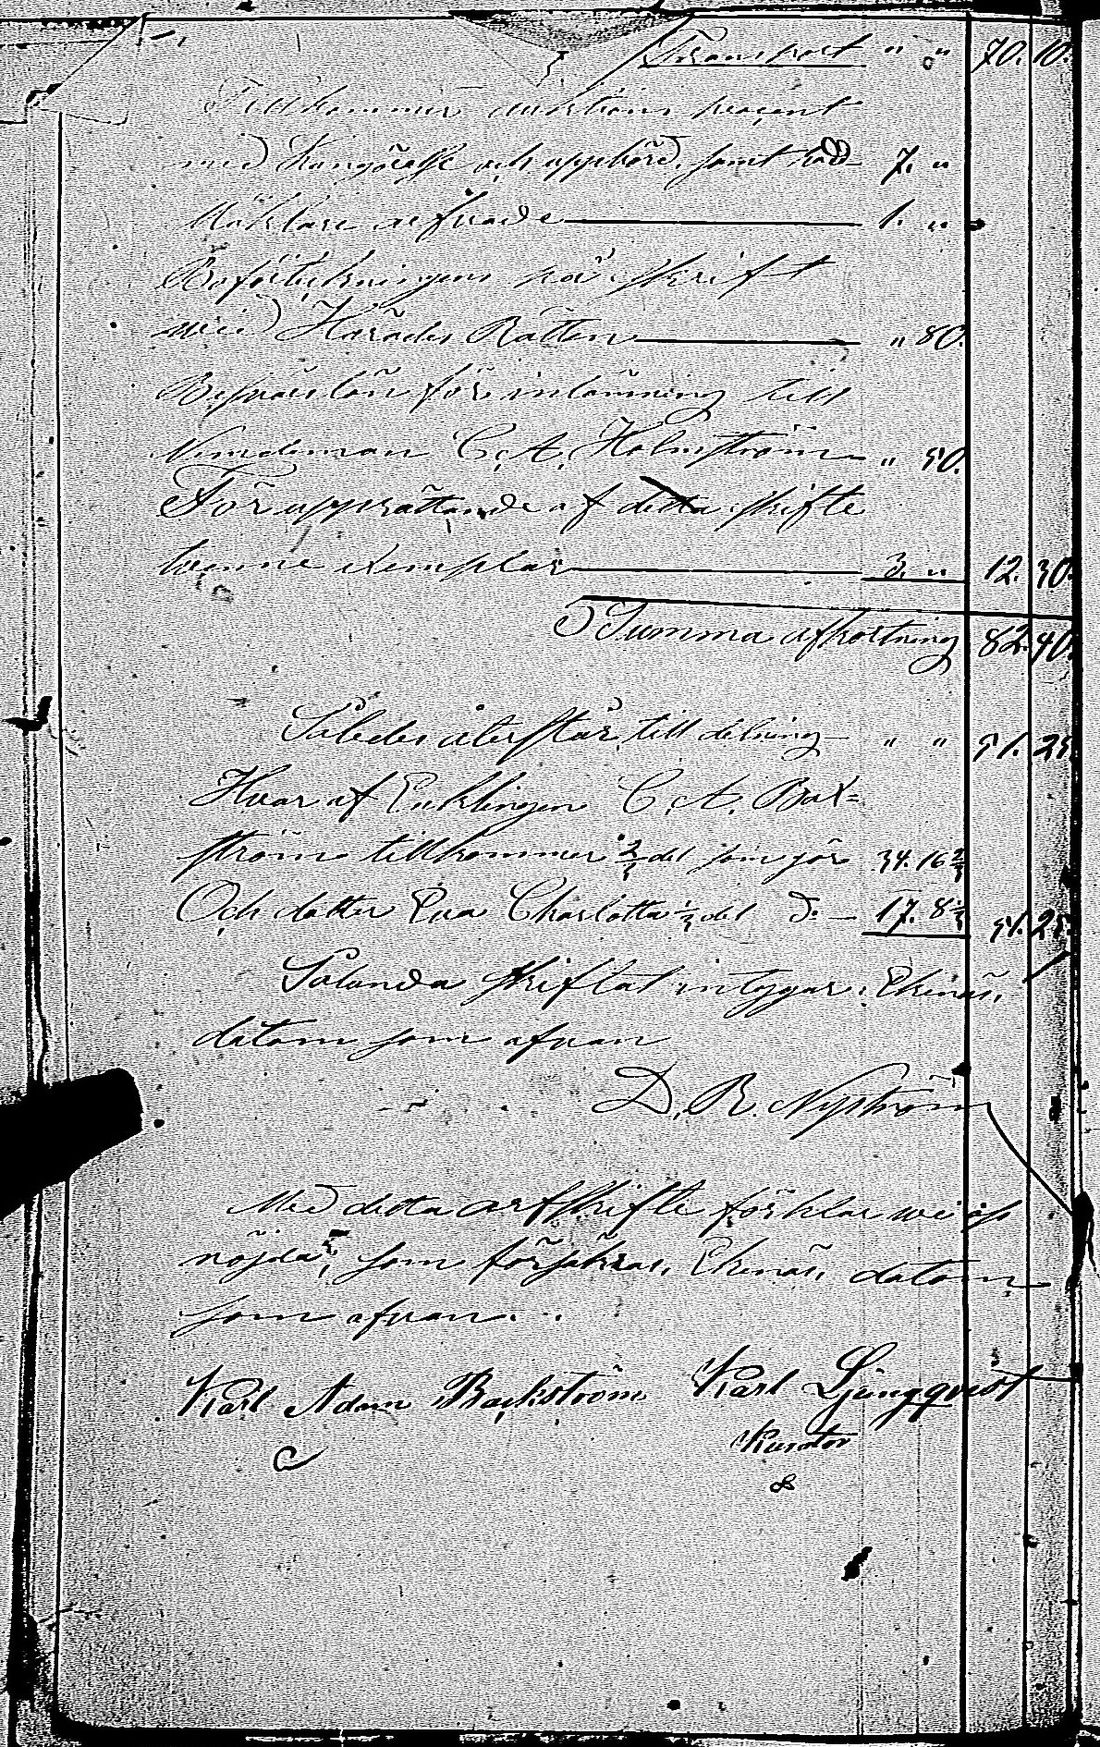 Transport " " 70. 10.
Tillkommer auktions procent
med Kungörelse och uppbörd samt 7. "
Mäklare arfvode 1. "
Bouppteckningens på skrift
wid Härads Rätten " 80.
Besvärslön för inlämning till
Nemdeman C. A. Holmström " 50.
För upprättande af detta skifte
tvenne exemplar 3. " 12. 30.
Summa afkortning 82. 40.
Således återstår till delning " " 51. 25.
Hvar af Enklingen C. A. Bak=
ström tillkommer 2/3 del som gör 34. 16 2/3
Och dotter Eva Charlotta 1/3 del d:o 17. 8 1/3 51. 25.
Sålunda skiftat intygar. Ekenäs,
datum som ofvan
D. R. Nyström
Med detta arfskifte förklar wi oss
nöjda, som försäkras, Ekenäs, datum
som ofvan.
Karl Adam Backström Karl Ljungqvist
Kurator